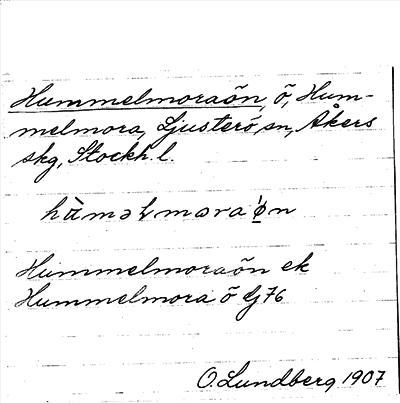 Hummelmoraön, ö, Hum-
melmora, Ljusterö sn, Åkers
skg, Stockh. l.
Hummelmoraön ek
Hummelmora ö 76
O. Lundberg 1907